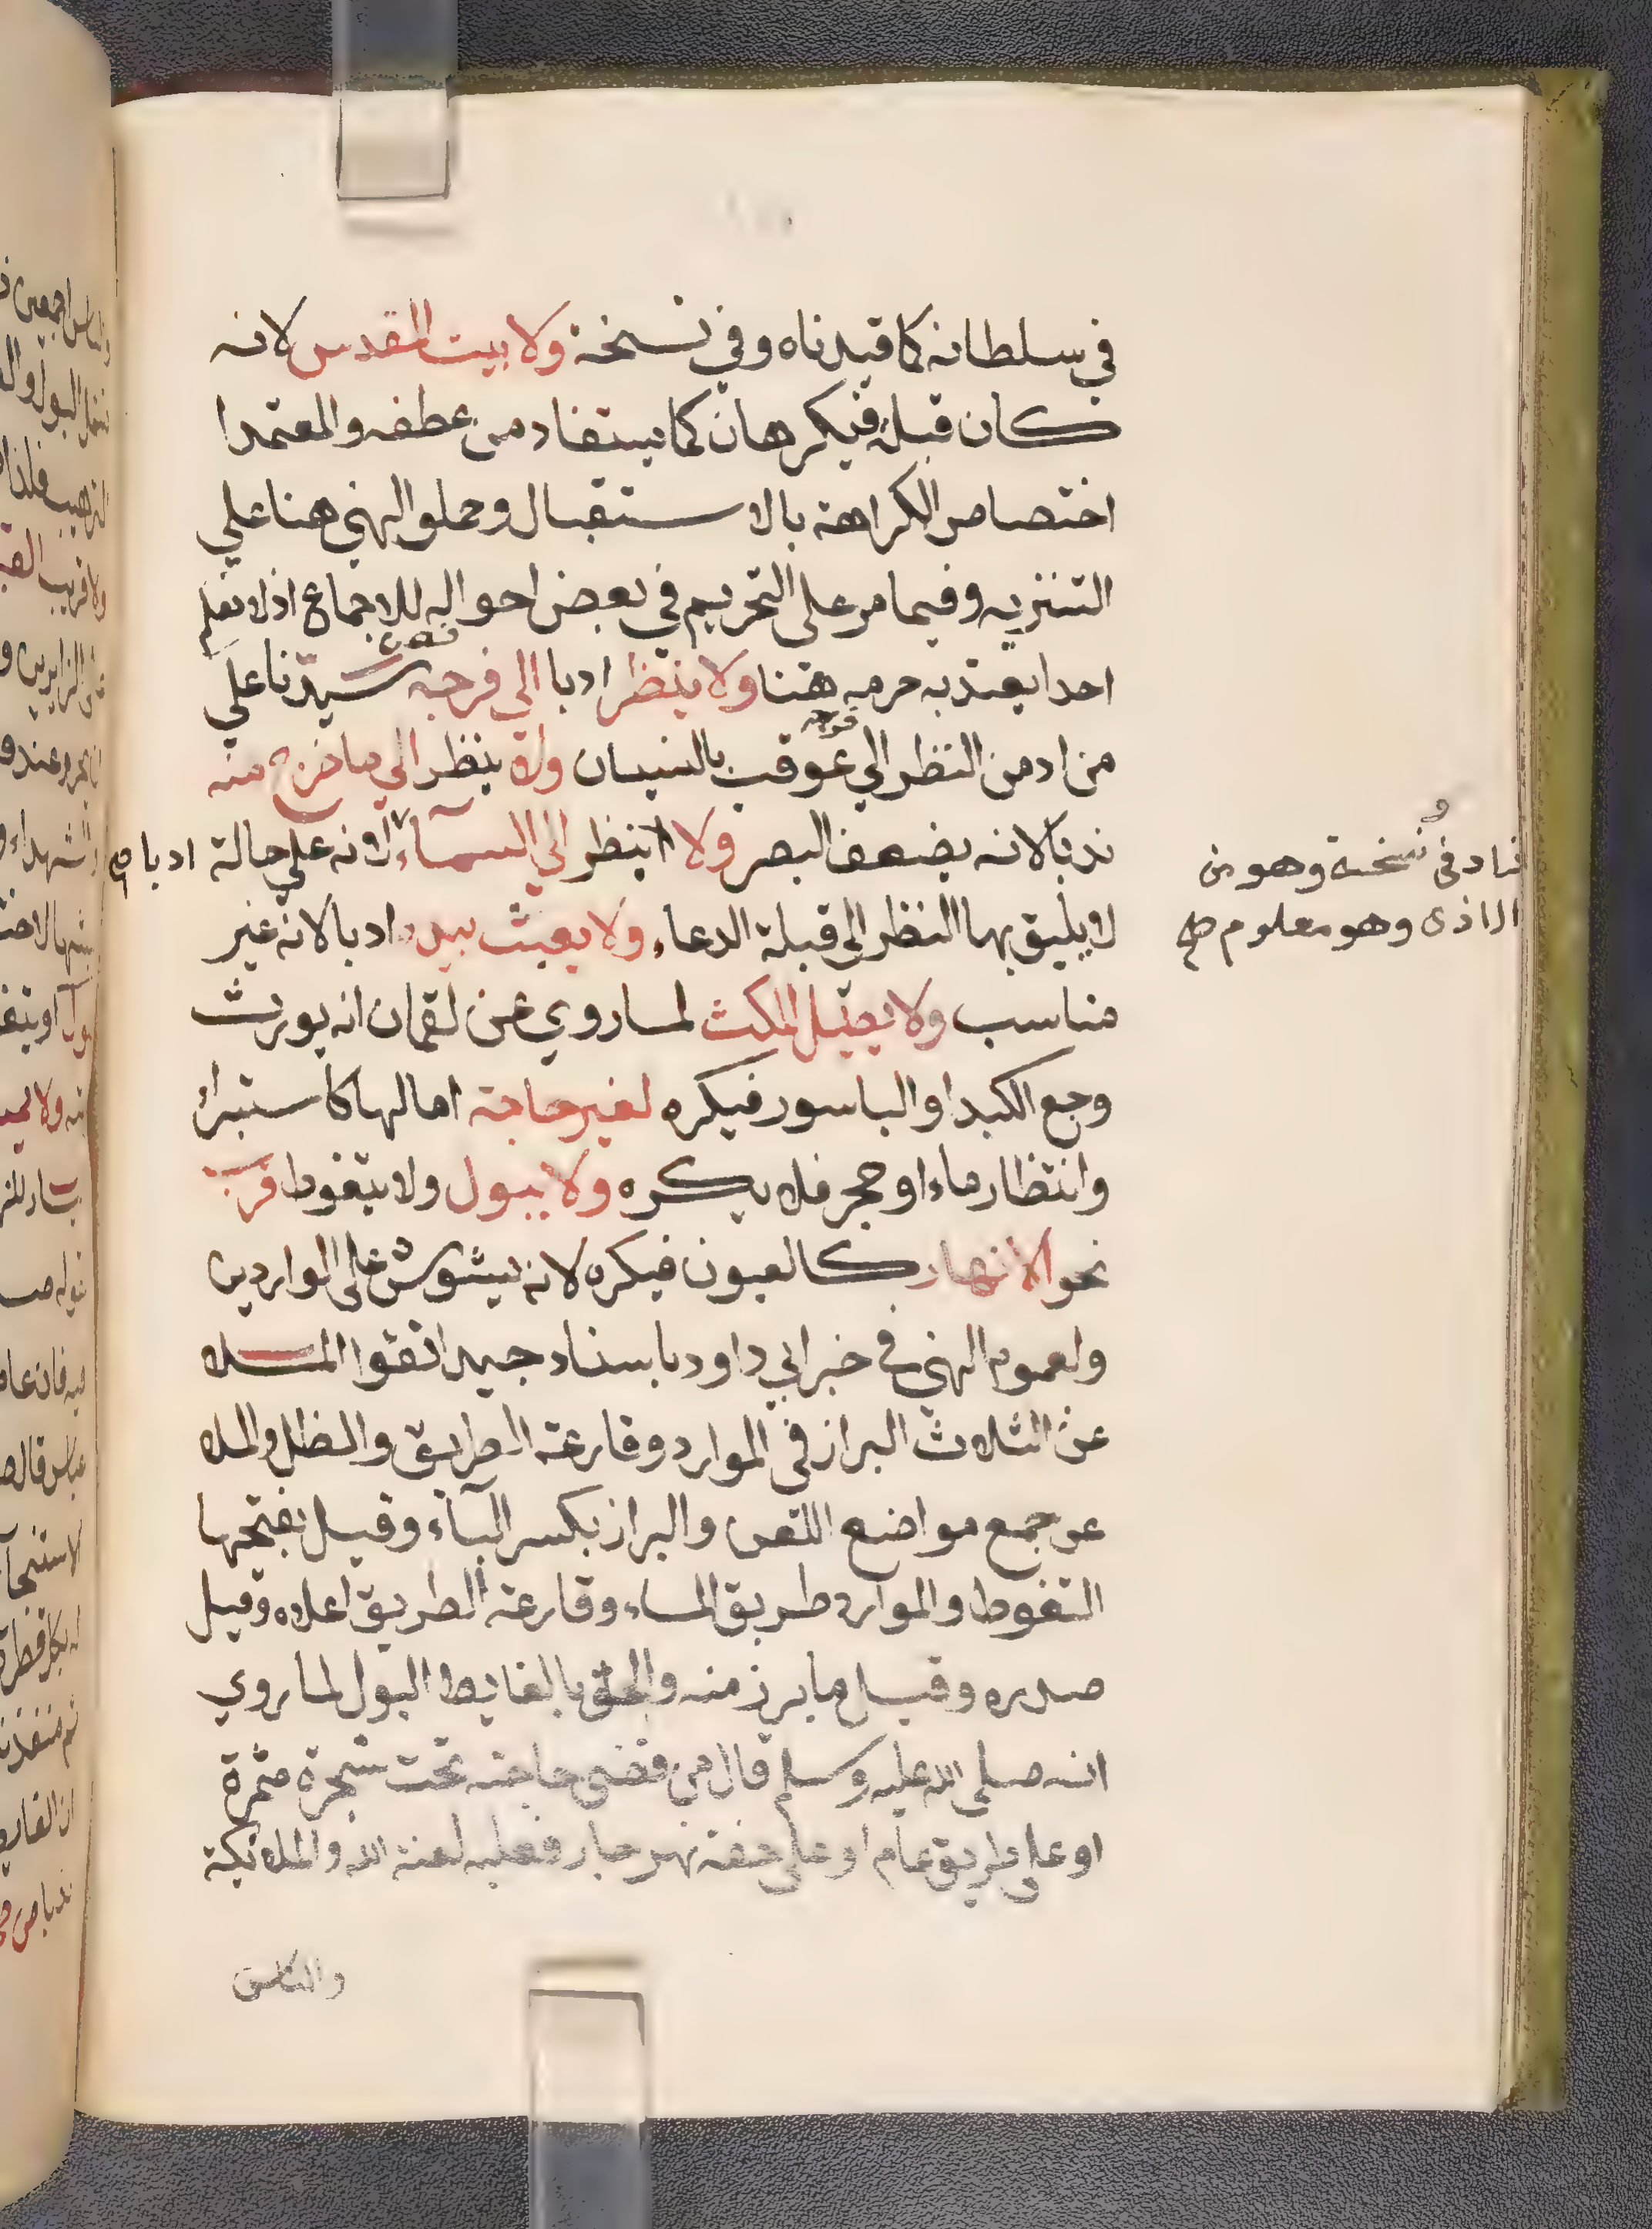 في سلطانه كما قيدناه وفي نسخة ولا بيت المقدس لانه
كان قبلة فيكرهان كما يستفاد من عطفه والمعتمدا
اختصاص الكراهة بالاستقبال وحملو النهي هنا علي
التنزيه وفيما مر على التحريم في بعض احواله للاجماع اذ لا نعلم
احدا يعتد به حرمه هنا ولا ينظر ادبا الي فرجه سيدنا علي
من ادمن النظر الي فرجه عوقب بالنسيان ولا ينظر الي ما خرج منه
ندبا لانه يضعف البصر ولا ينظر الي السماء لانه علي حالة ادبا صح
زاد في نسخة وهو من
الاذى وهو معلوم صح
لا يليق بها النظر الى قبلة الدعاء ولا يعبث بيده ادبا لانه غير
مناسب ولا يطيل المكث لما روي عن لقمان انه يورث
وجع الكبد او الباسور فيكره لغير حاجة اما لها كاستبرائ
وانتظار ماء او حجر فلا يكره ولا يبول ولا يتغوط قرب
نحو الانهار كالعيون فيكره لانه يشوش على الواردين
ولعموم النهي في خبر ابي داود باسناد جيد اتقوا الملا
عن الثلاث البراز في الموارد وقارعة الطريق والظل والملا
عن جمع مواضع اللعن والبراز بكسر الباء وقيل بفتحها
التغوط والموارد طريق الماء وقارعة الطريق اعلاه وقيل
صدره وقيل ما برز منه والحق بالغايط البول لما روي
انه صلى الله عليه وسلم قال من قضى حاجته تحت شجرة مثمرة
او على طريق عام او على ضفة نهر جار فعليه لعنة الله والملائكة
والناس